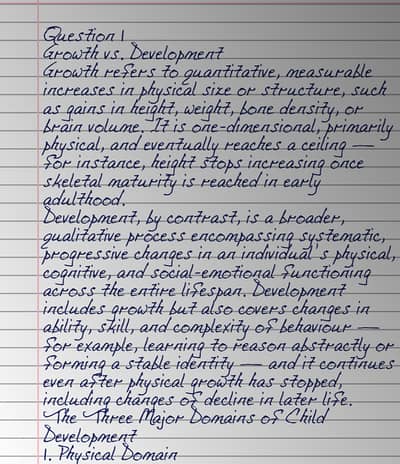 Question 1
Growth vs. Development
Growth refers to quantitative, measurable
increases in physical size or structure, such
as gains in height, weight, bone density, or
brain volume. It is one-dimensional, primarily
physical, and eventually reaches a ceiling —
for instance, height stops increasing once
skeletal maturity is reached in early
adulthood.
Development, by contrast, is a broader,
qualitative process encompassing systematic,
progressive changes in an individual's physical,
cognitive, and social-emotional functioning
across the entire lifespan. Development
includes growth but also covers changes in
ability, skill, and complexity of behaviour —
for example, learning to reason abstractly or
forming a stable identity — and it continues
even after physical growth has stopped,
including changes of decline in later life.
The Three Major Domains of Child
Development
1. Physical Domain